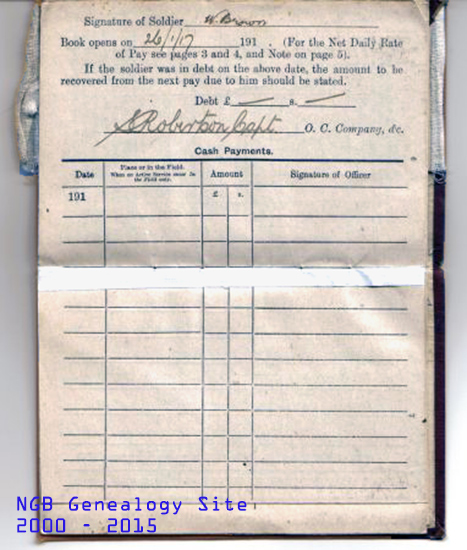 Signature of Soldier W. Brown
Book opens on 26/1/17 191 . (For the Net Daily Rate
of Pay see pages 3 and 4, and Note on page 5).
If the soldier was in debt on the above date, the amount to be
recovered from the next pay due to him should be stated.
Debt £ — s. —
Robertson Capt. O. C. Company, &c.
Cash Payments.
Date
Place or in the Field.
When on Active Service enter In
the Field only.
Amount
Signature of Officer
191
£ s.
NGB Genealogy Site
2000 - 2015